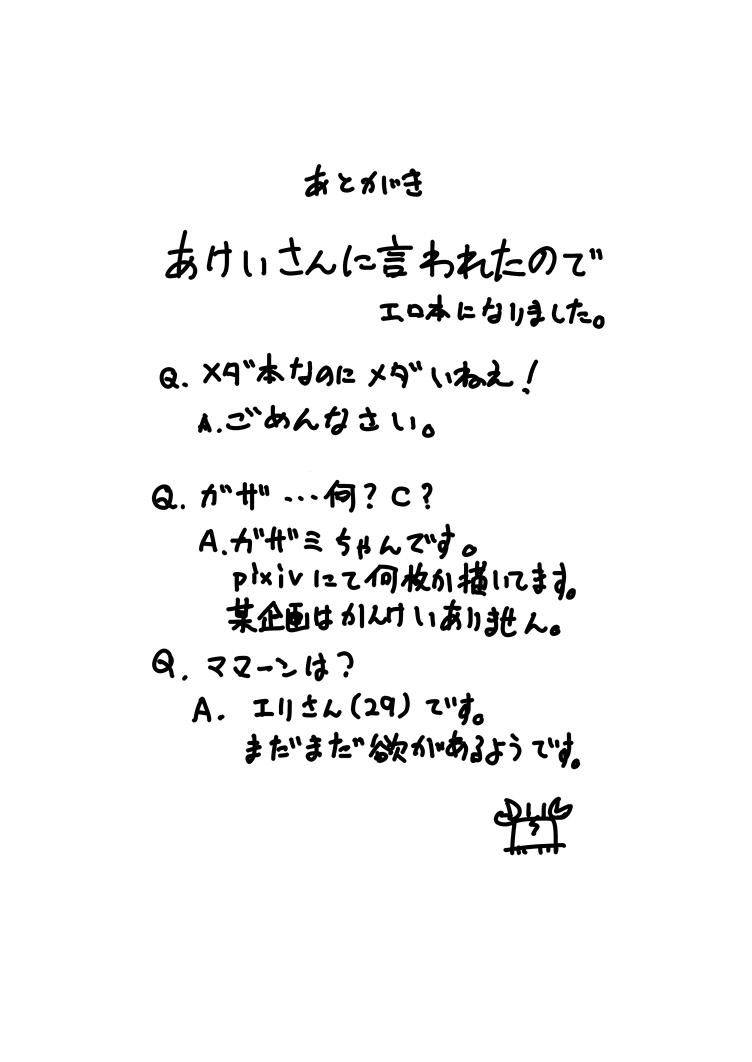 あとがき
あけいさんに言われたので
エロ本になりました。
Q. メダ本なのにメダいねえ!
A. ごめんなさい。
Q. ガザ…何?C?
A. ガザミちゃんです。
pixivにて何枚か描いてます。
某企画はかんけいありません。
Q. ママーンは?
A. エリさん(29)です。
まだまだ欲があるようです。